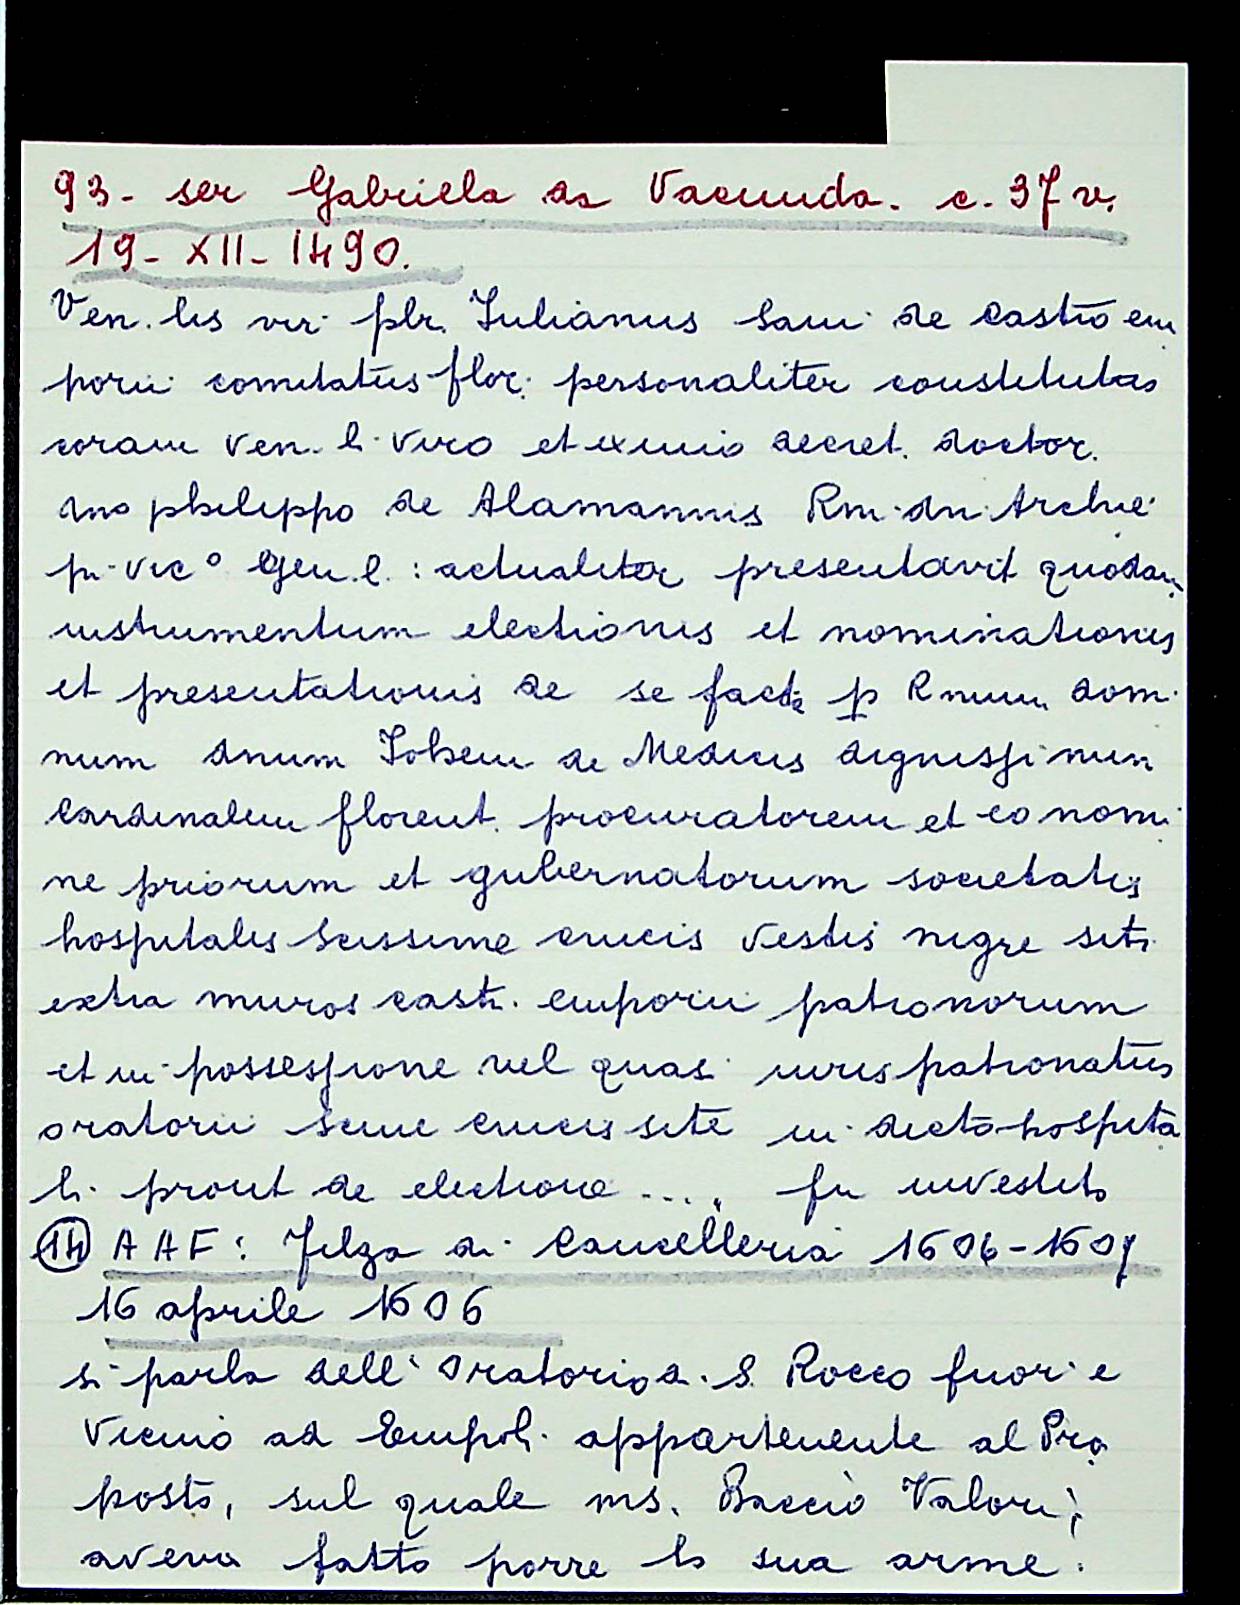 93- ser Gabriella da Vacunda. c. 37 v.
19- XII- 1490.
Ven. lis vir pbr. Iulianus Sani de castro em
porii comitatus flor. personaliter constitutus
coram Ven. l. viro et eximio decret. doctor.
dno philippo de Alamannis Rm. dn. Archie
pi. vic° Gen.l. : actualiter presentavit quodam
instrumentum electionis et nominationis
et presentationis de se facte p Rmum dom
num dnum Johem de Medicis dignissimum
Cardinalem florent. procuratorem et eo nomi
ne priorum et gubernatorum societatis
hospitalis Scissime crucis vestis nigre siti
extra muros castr. emporii patronorum
et in possessione vel quasi iuris patronatus
oratorii Scme crucis site in dicto hospita
li prout de electione .... fu investito
14 AAF: filza di Cancelleria 1606-1607
16 aprile 1606
si parla dell' Oratorio di S. Rocco fuori e
vicino ad Empoli appartenente al Pro
posto, sul quale ms. Baccio Valori,
aveva fatto porre la sua arme.